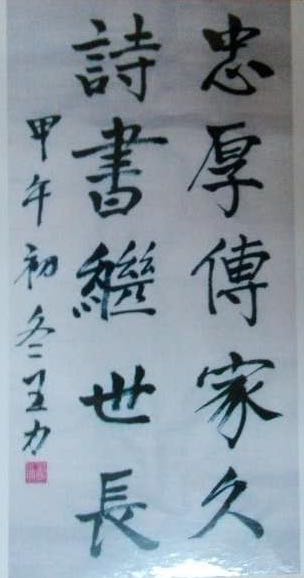 忠厚傳家久
詩書繼世長
甲午初冬